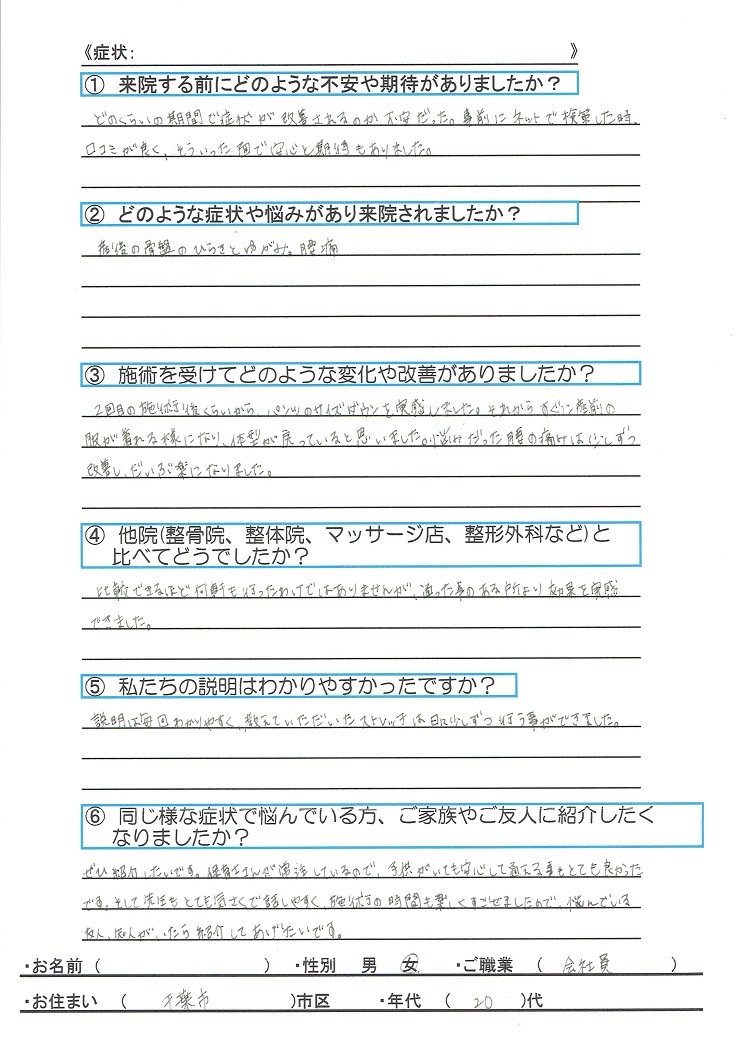 《症状: 》
① 来院する前にどのような不安や期待がありましたか？
どのくらいの期間で症状が改善されるのか不安だった。事前にネットで検索した時、
口コミが良く、そういった面で安心と期待もありました。
② どのような症状や悩みがあり来院されましたか？
産後の骨盤のひらきとゆがみ。腰痛
③ 施術を受けてどのような変化や改善がありましたか？
2回目の施術後くらいから、パンツのサイズダウンを実感しました。それからすぐに産前の
服が着れる様になり、体型が戻っていると思いました。お悩みだった腰の痛みは少しずつ
改善し、だいぶ楽になりました。
④ 他院(整骨院、整体院、マッサージ店、整形外科など)と
比べてどうでしたか？
比較できるほど何軒も行ったわけではありませんが、通った事のある所より効果を実感
できました。
⑤ 私たちの説明はわかりやすかったですか？
説明は毎回わかりやすく、教えていただいたストレッチは日に少しずつ行う事ができました。
⑥ 同じ様な症状で悩んでいる方、ご家族やご友人に紹介したく
なりましたか？
ぜひ紹介したいです。保育士さんが常注しているので、子供がいても安心して通える事もとても良かった
です。そして先生もとても気さくで話しやすく、施術の時間も楽しくすごせましたので、悩んでいる
友人、知人がいたら紹介してあげたいです。
・お名前 ( ) ・性別 男 女 ・ご職業 ( 会社員 )
・お住まい ( 千葉市 )市区 ・年代 ( 20 )代